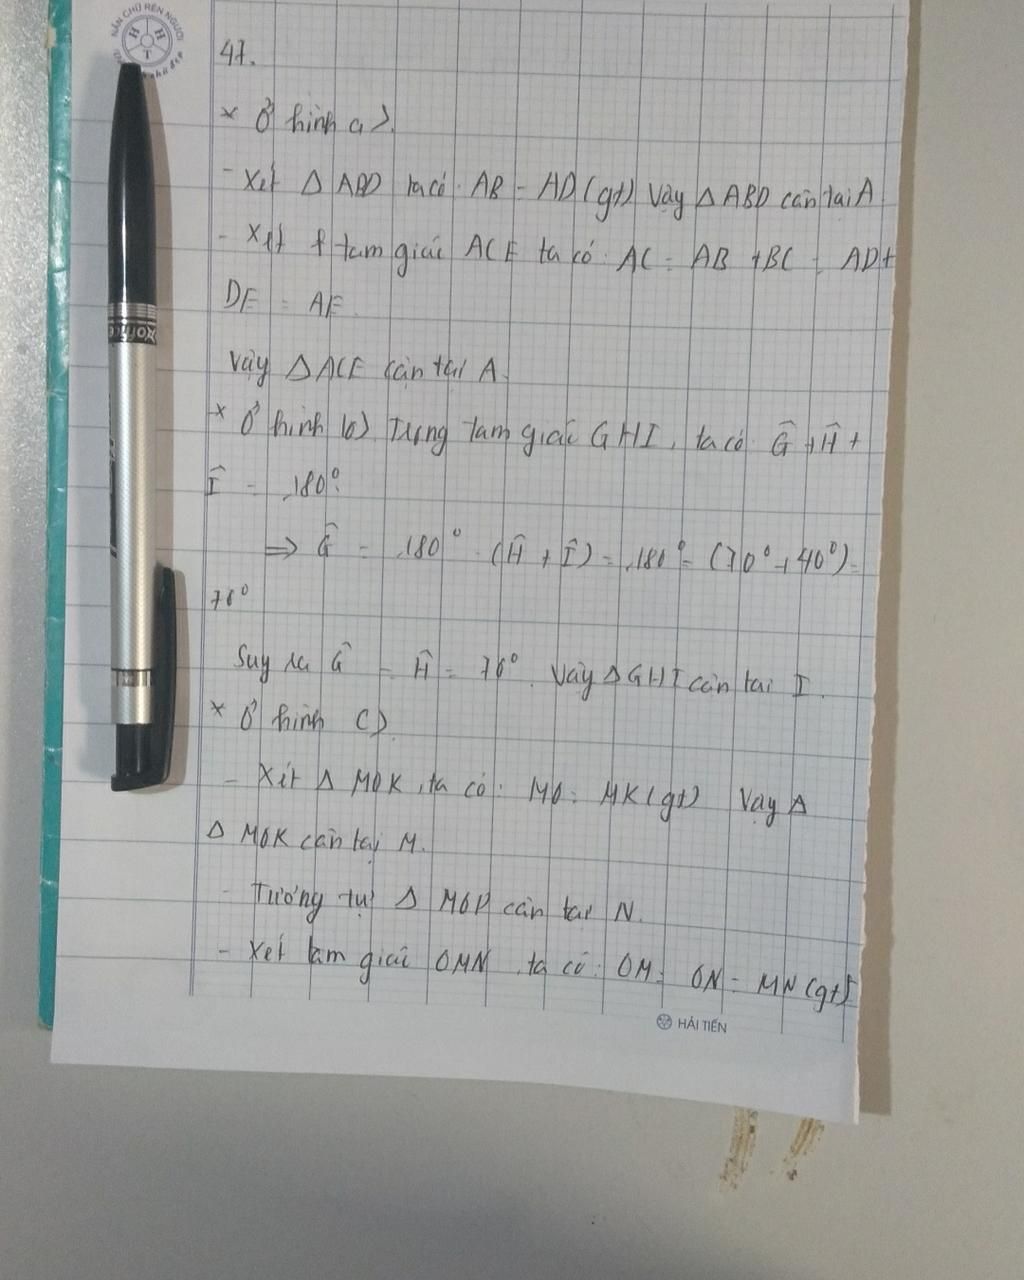 NẮN CHỮ RÈN NGƯỜI
H H T
47.
* Ở hình a).
- Xét Δ ABD ta có: AB = AD (gt) Vậy Δ ABD cân tại A
- Xét tam giác ACE ta có: AC = AB + BC = AD +
DE = AE.
Vậy Δ ACE cân tại A.
* Ở hình b) Trong tam giác GHI, ta có Ĝ + Ĥ +
Î = 180°.
⇒ Ĝ = 180° - (Ĥ + Î) = 180° - (70° + 40°) =
70°
Suy ra Ĝ = Ĥ = 70°. Vậy Δ GHI cân tại I.
* Ở hình c).
- Xét Δ MOK, ta có: MO = MK (gt) Vậy Δ
Δ MOK cân tại M.
- Tương tự Δ MOP cân tại N.
- Xét tam giác OMN ta có: OM = ON = MN (gt)
HẢI TIẾN